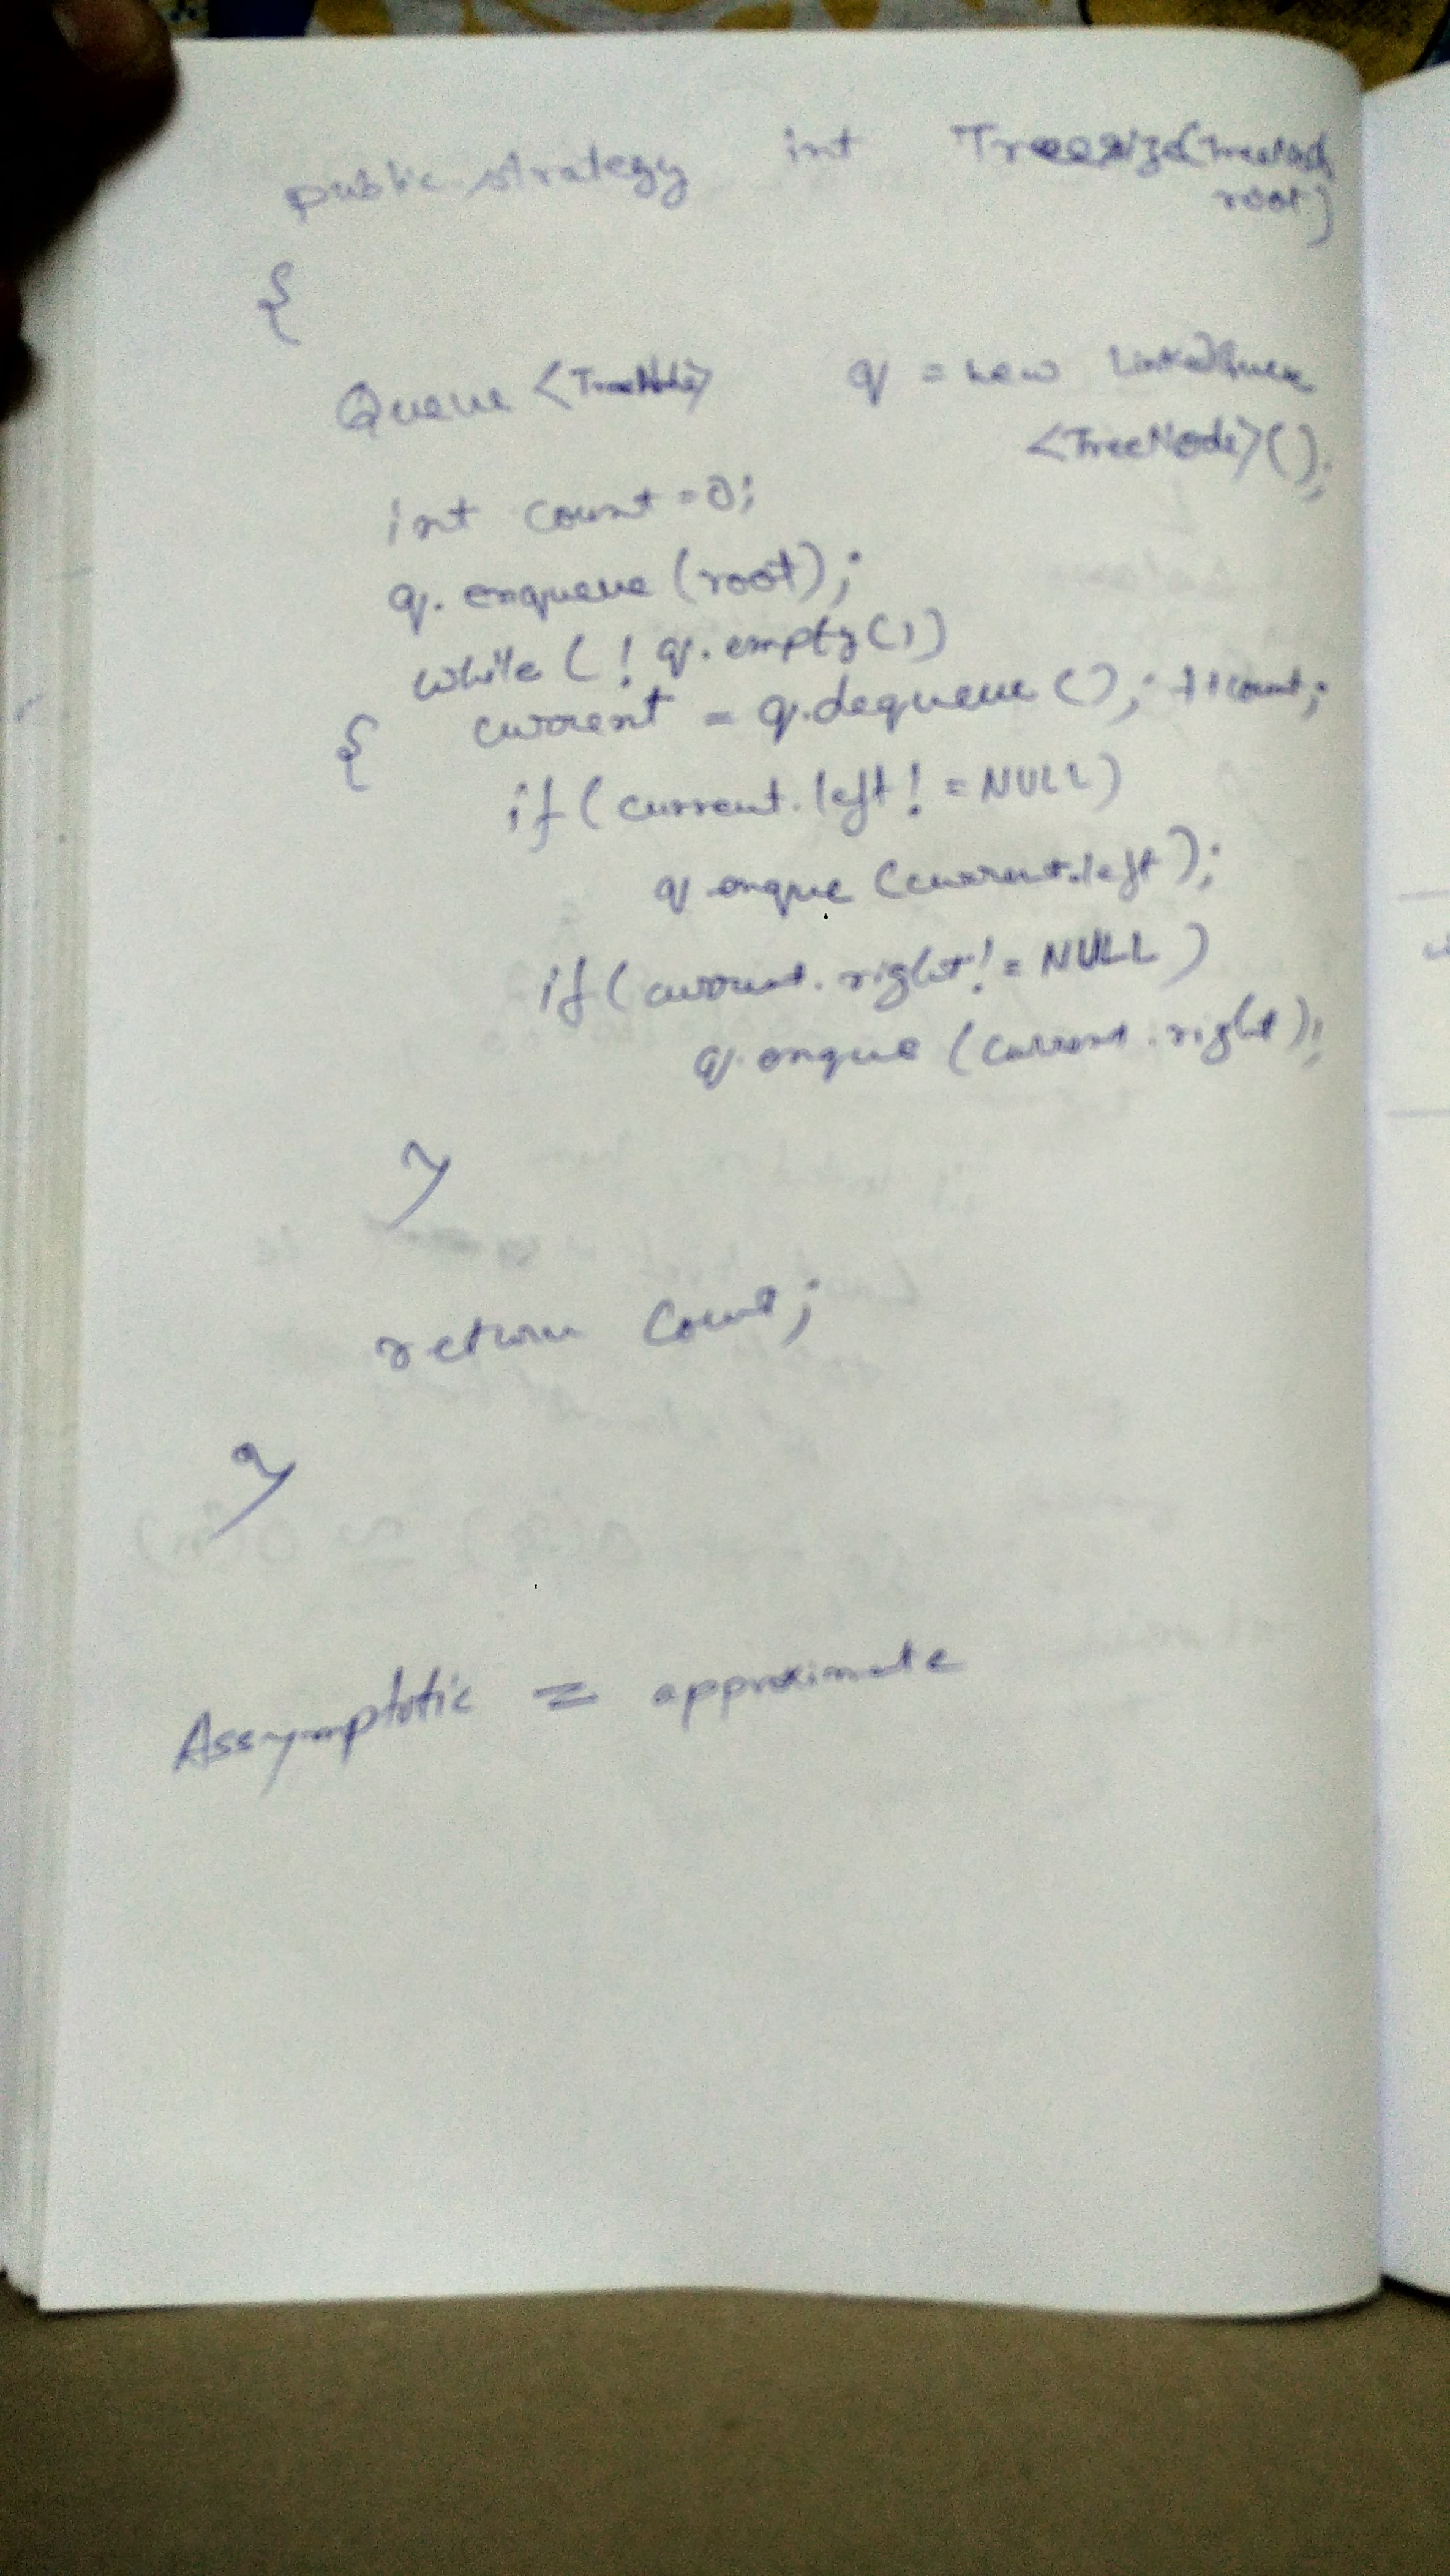 public strategy int Treesize(TreeNode
root)
{
Queue <TreeNode> q = new LinkedQueue
<TreeNode>();
int count = 0;
q. enqueue (root);
while ( ! q. empty ( ) )
{ current = q.dequeue ( ); ++count;
if ( current. left ! = NULL )
q enque (current.left );
if ( current. right ! = NULL )
q. enque ( current . right );
}
return Count;
}
Assymptotic = approximate